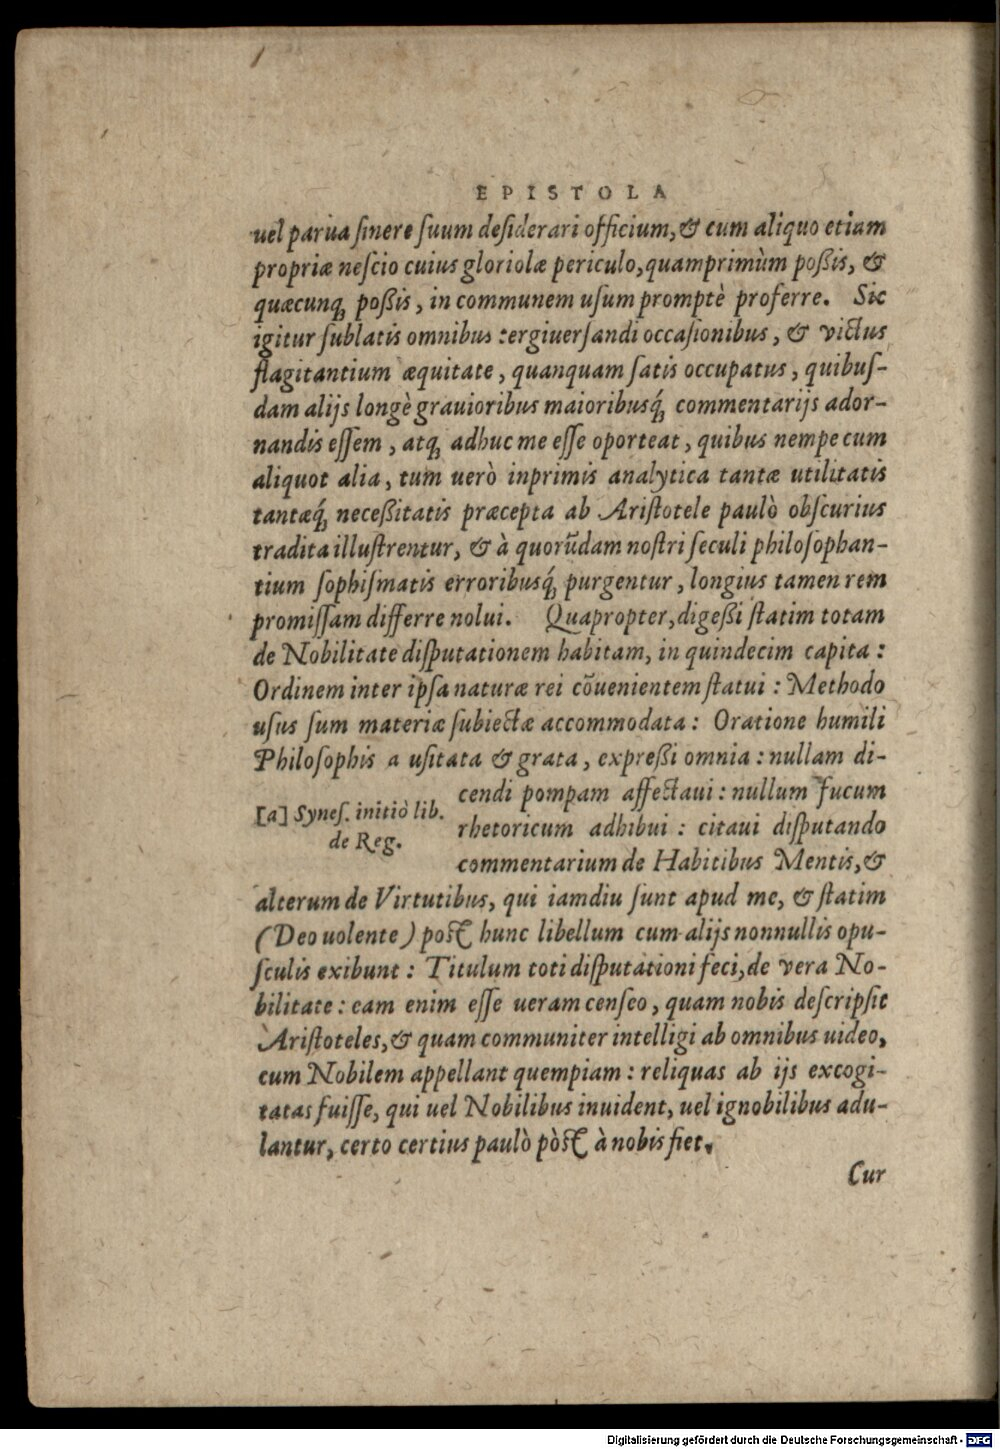 EPISTOLA
uel parua ſinere ſuum deſiderari officium, & cum aliquo etiam
propriæ neſcio cuius gloriolæ periculo, quamprimùm poßis, &
quæcunq; poßis, in communem uſum promptè proferre. Sic
igitur ſublatis omnibus tergiuerſandi occaſionibus, & victus
flagitantium æquitate, quanquam ſatis occupatus, quibuſ-
dam alijs longè grauioribus maioribusq́; commentarijs ador-
nandis eſſem, atq; adhuc me eſſe oporteat, quibus nempe cum
aliquot alia, tum uerò inprimis analytica tantæ utilitatis
tantæq́; neceßitatis præcepta ab Ariſtotele paulò obſcurius
tradita illuſtrentur, & à quorũdam noſtri ſeculi philoſophan-
tium ſophiſmatis erroribusq́; purgentur, longius tamen rem
promiſſam differre nolui. Quapropter, digeßi ſtatim totam
de Nobilitate diſputationem habitam, in quindecim capita:
Ordinem inter ipſa naturæ rei cõuenientem ſtatui: Methodo
uſus ſum materiæ ſubiectæ accommodata: Oratione humili
Philoſophis a uſitata & grata, expreßi omnia: nullam di-
cendi pompam affectaui: nullum fucum
[a] Syneſ. initiò lib.
de Reg.
rhetoricum adhibui: citaui diſputando
commentarium de Habitibus Mentis, &
alterum de Virtutibus, qui iamdiu ſunt apud me, & ſtatim
(Deo uolente) poſt hunc libellum cum alijs nonnullis opu-
ſculis exibunt: Titulum toti diſputationi feci, de vera No-
bilitate: eam enim eſſe ueram cenſeo, quam nobis deſcripſit
Ariſtoteles, & quam communiter intelligi ab omnibus uideo,
cum Nobilem appellant quempiam: reliquas ab ijs excogi-
tatas fuiſſe, qui uel Nobilibus inuident, uel ignobilibus adu-
lantur, certo certius paulò pòſt à nobis fiet.
Cur
Digitalisierung gefördert durch die Deutsche Forschungsgemeinschaft - DFG